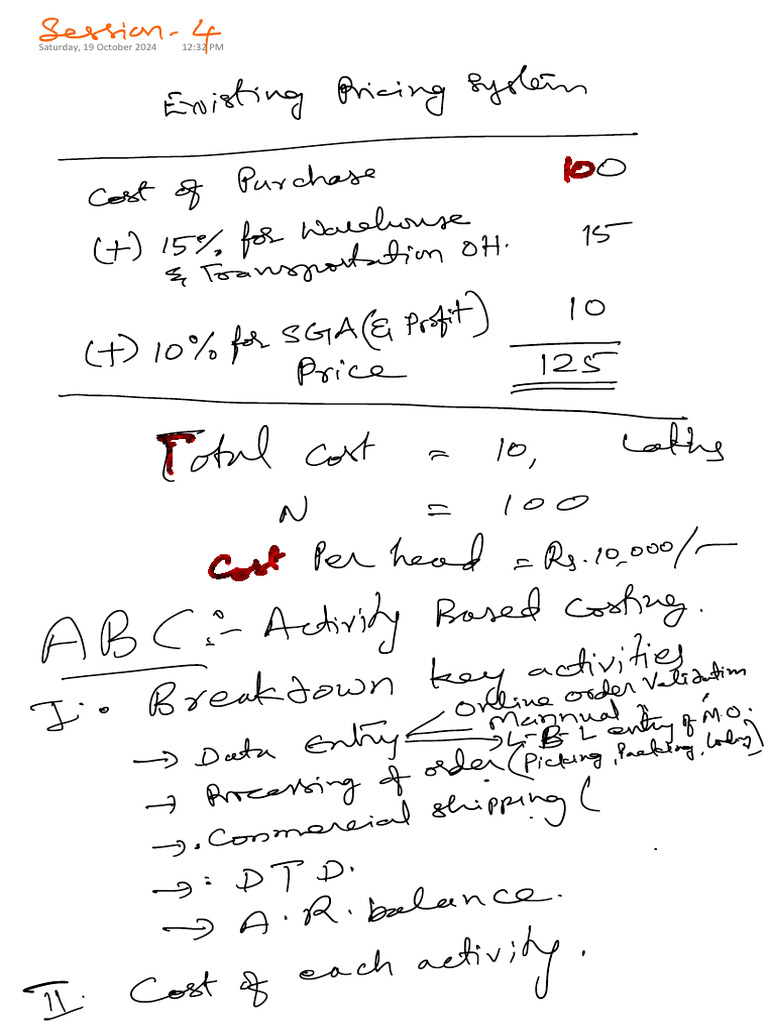 Session - 4
Saturday, 19 October 2024 12:32 PM
Existing Pricing System
Cost of Purchase 100
(+) 15% for Warehouse 15
& Transportation OH.
(+) 10% for SGA (& Profit) 10
Price 125
Total Cost = 10, Lakhs
N = 100
Cost Per head = Rs. 10,000/-
ABC :- Activity Based Costing.
I. Breakdown key activities
Online order Validation
→ Data Entry Mannual
L-B-L entry of M.O.
→ Processing of order (Picking, Packing,
→ Commercial shipping (
→ DTD.
→ A.R. balance.
II. Cost of each activity.